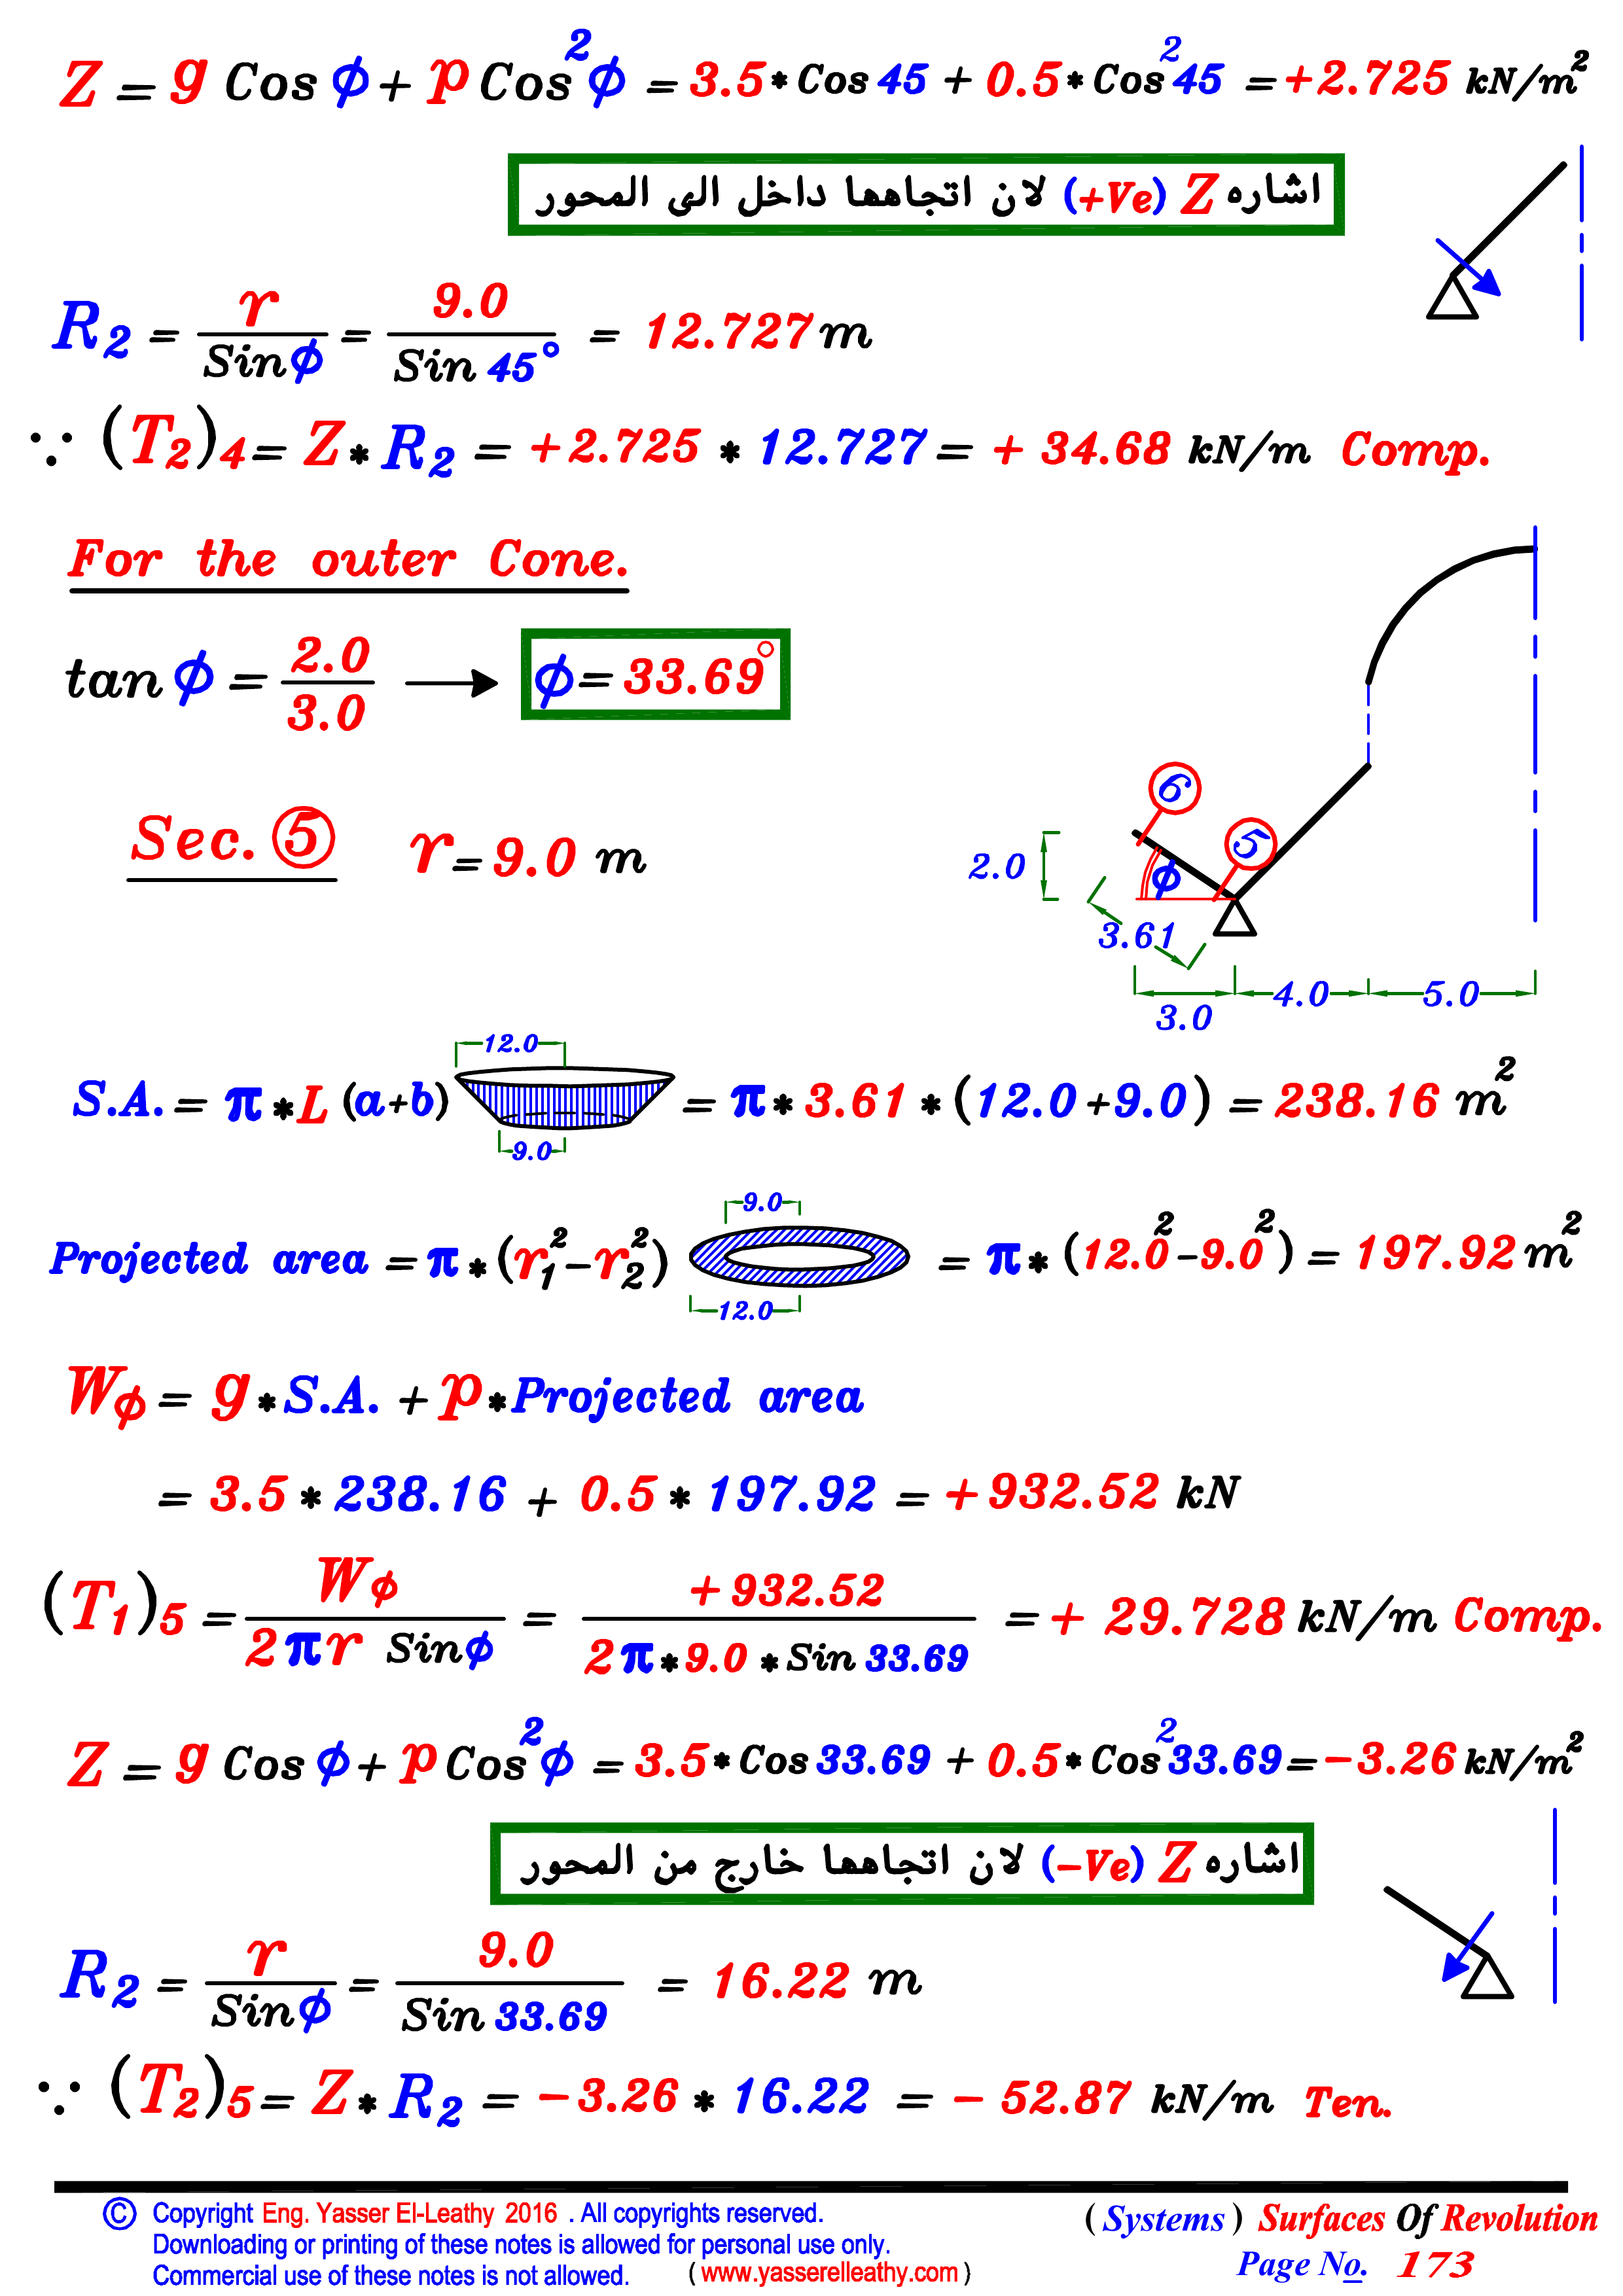 Z = g Cos ϕ + p Cos² ϕ = 3.5 * Cos 45 + 0.5 * Cos² 45 = +2.725 kN/m²
اشاره Z (+Ve) لان اتجاهها داخل الى المحور
R₂ = r / Sin ϕ = 9.0 / Sin 45° = 12.727 m
∵ (T₂)₄ = Z * R₂ = +2.725 * 12.727 = + 34.68 kN/m Comp.
For the outer Cone.
tan ϕ = 2.0 / 3.0 → ϕ = 33.69°
Sec. ⑤ r = 9.0 m
6
5
2.0
ϕ
3.61
4.0
5.0
3.0
12.0
S.A. = π * L (a+b) = π * 3.61 * (12.0 + 9.0) = 238.16 m²
9.0
9.0
Projected area = π * (r₁² - r₂²) = π * (12.0² - 9.0²) = 197.92 m²
12.0
Wϕ = g * S.A. + p * Projected area
= 3.5 * 238.16 + 0.5 * 197.92 = +932.52 kN
(T₁)₅ = Wϕ / 2πr Sin ϕ = +932.52 / 2π * 9.0 * Sin 33.69 = + 29.728 kN/m Comp.
Z = g Cos ϕ + p Cos² ϕ = 3.5 * Cos 33.69 + 0.5 * Cos² 33.69 = -3.26 kN/m²
اشاره Z (-Ve) لان اتجاهها خارج من المحور
R₂ = r / Sin ϕ = 9.0 / Sin 33.69 = 16.22 m
∵ (T₂)₅ = Z * R₂ = -3.26 * 16.22 = - 52.87 kN/m Ten.
© Copyright Eng. Yasser El-Leathy 2016 . All copyrights reserved.
Downloading or printing of these notes is allowed for personal use only.
Commercial use of these notes is not allowed. ( www.yasserelleathy.com )
( Systems ) Surfaces Of Revolution
Page No. 173